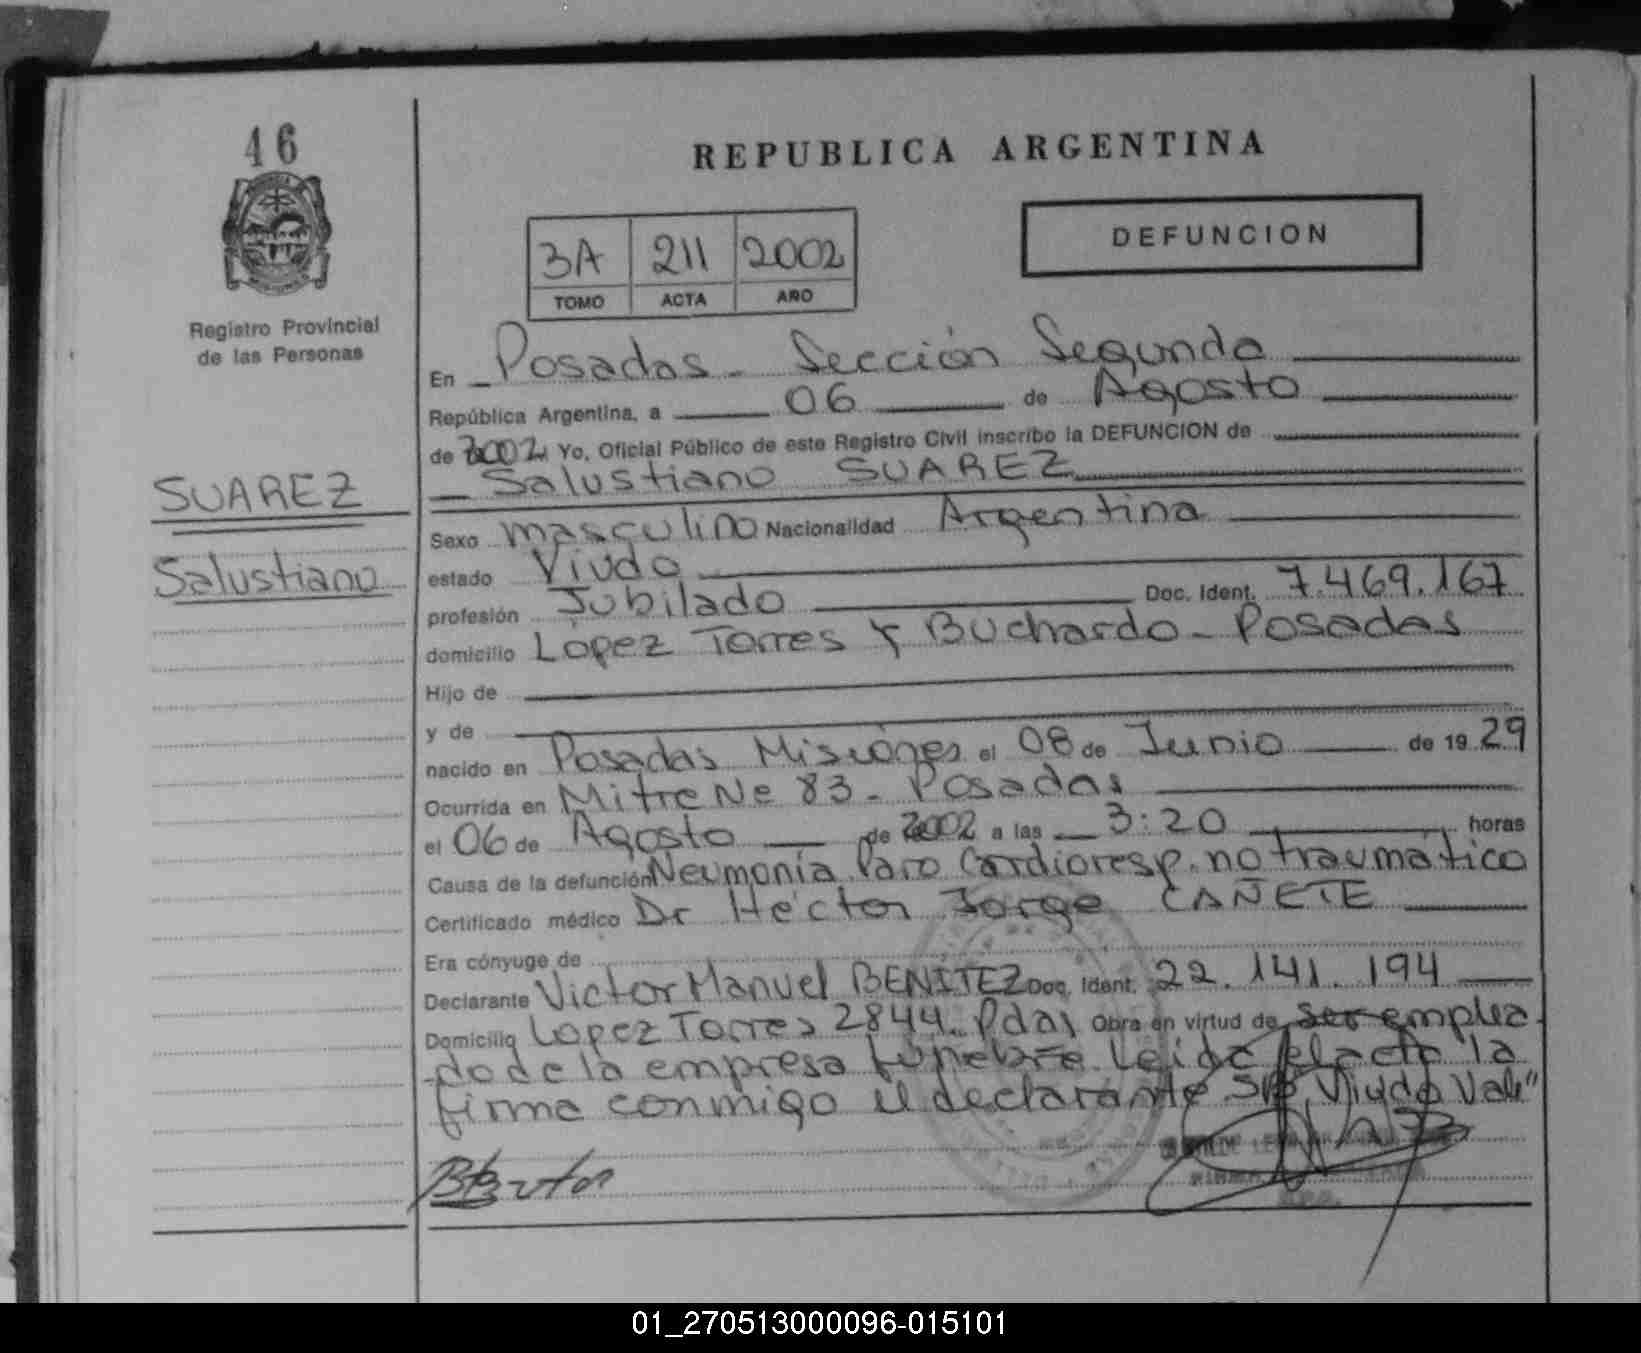 46
REPUBLICA ARGENTINA
3A 211 2002
TOMO ACTA AÑO
DEFUNCION
Registro Provincial
de las Personas
En Posadas - Sección Segunda
República Argentina, a 06 de Agosto
de 2002 Yo, Oficial Público de este Registro Civil inscribo la DEFUNCION de
Salustiano SUAREZ
SUAREZ
Salustiano
Sexo masculino Nacionalidad Argentina
estado Viudo
profesión Jubilado Doc. Ident. 7.469.167
domicilio Lopez Torres y Buchardo - Posadas
Hijo de
y de
nacido en Posadas Misiones el 08 de Junio de 1929
Ocurrida en Mitre Ne 83 - Posadas
el 06 de Agosto de 2002 a las 3:20 horas
Causa de la defunción Neumonía Paro Cardioresp. no traumatico
Certificado médico Dr Héctor Jorge CAÑETE
Era cónyuge de
Declarante Victor Manuel BENITEZ Doc. Ident. 22.141.194
Domicilio Lopez Torres 2844 Pdas Obra en virtud de ser emplea
do de la empresa funebre Leida el acta la
firma conmigo el declarante S/B Viudo Vale"
01_270513000096-015101